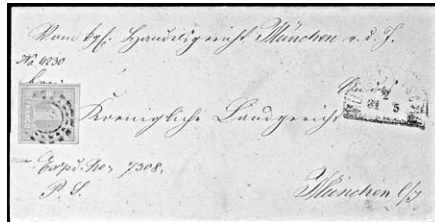 Vom kgl. Handelsgericht München r. d. I.
No 4230
Koenigliche Landgericht
2
21 5
Expd. No: 7308.
P. S.
München l/I